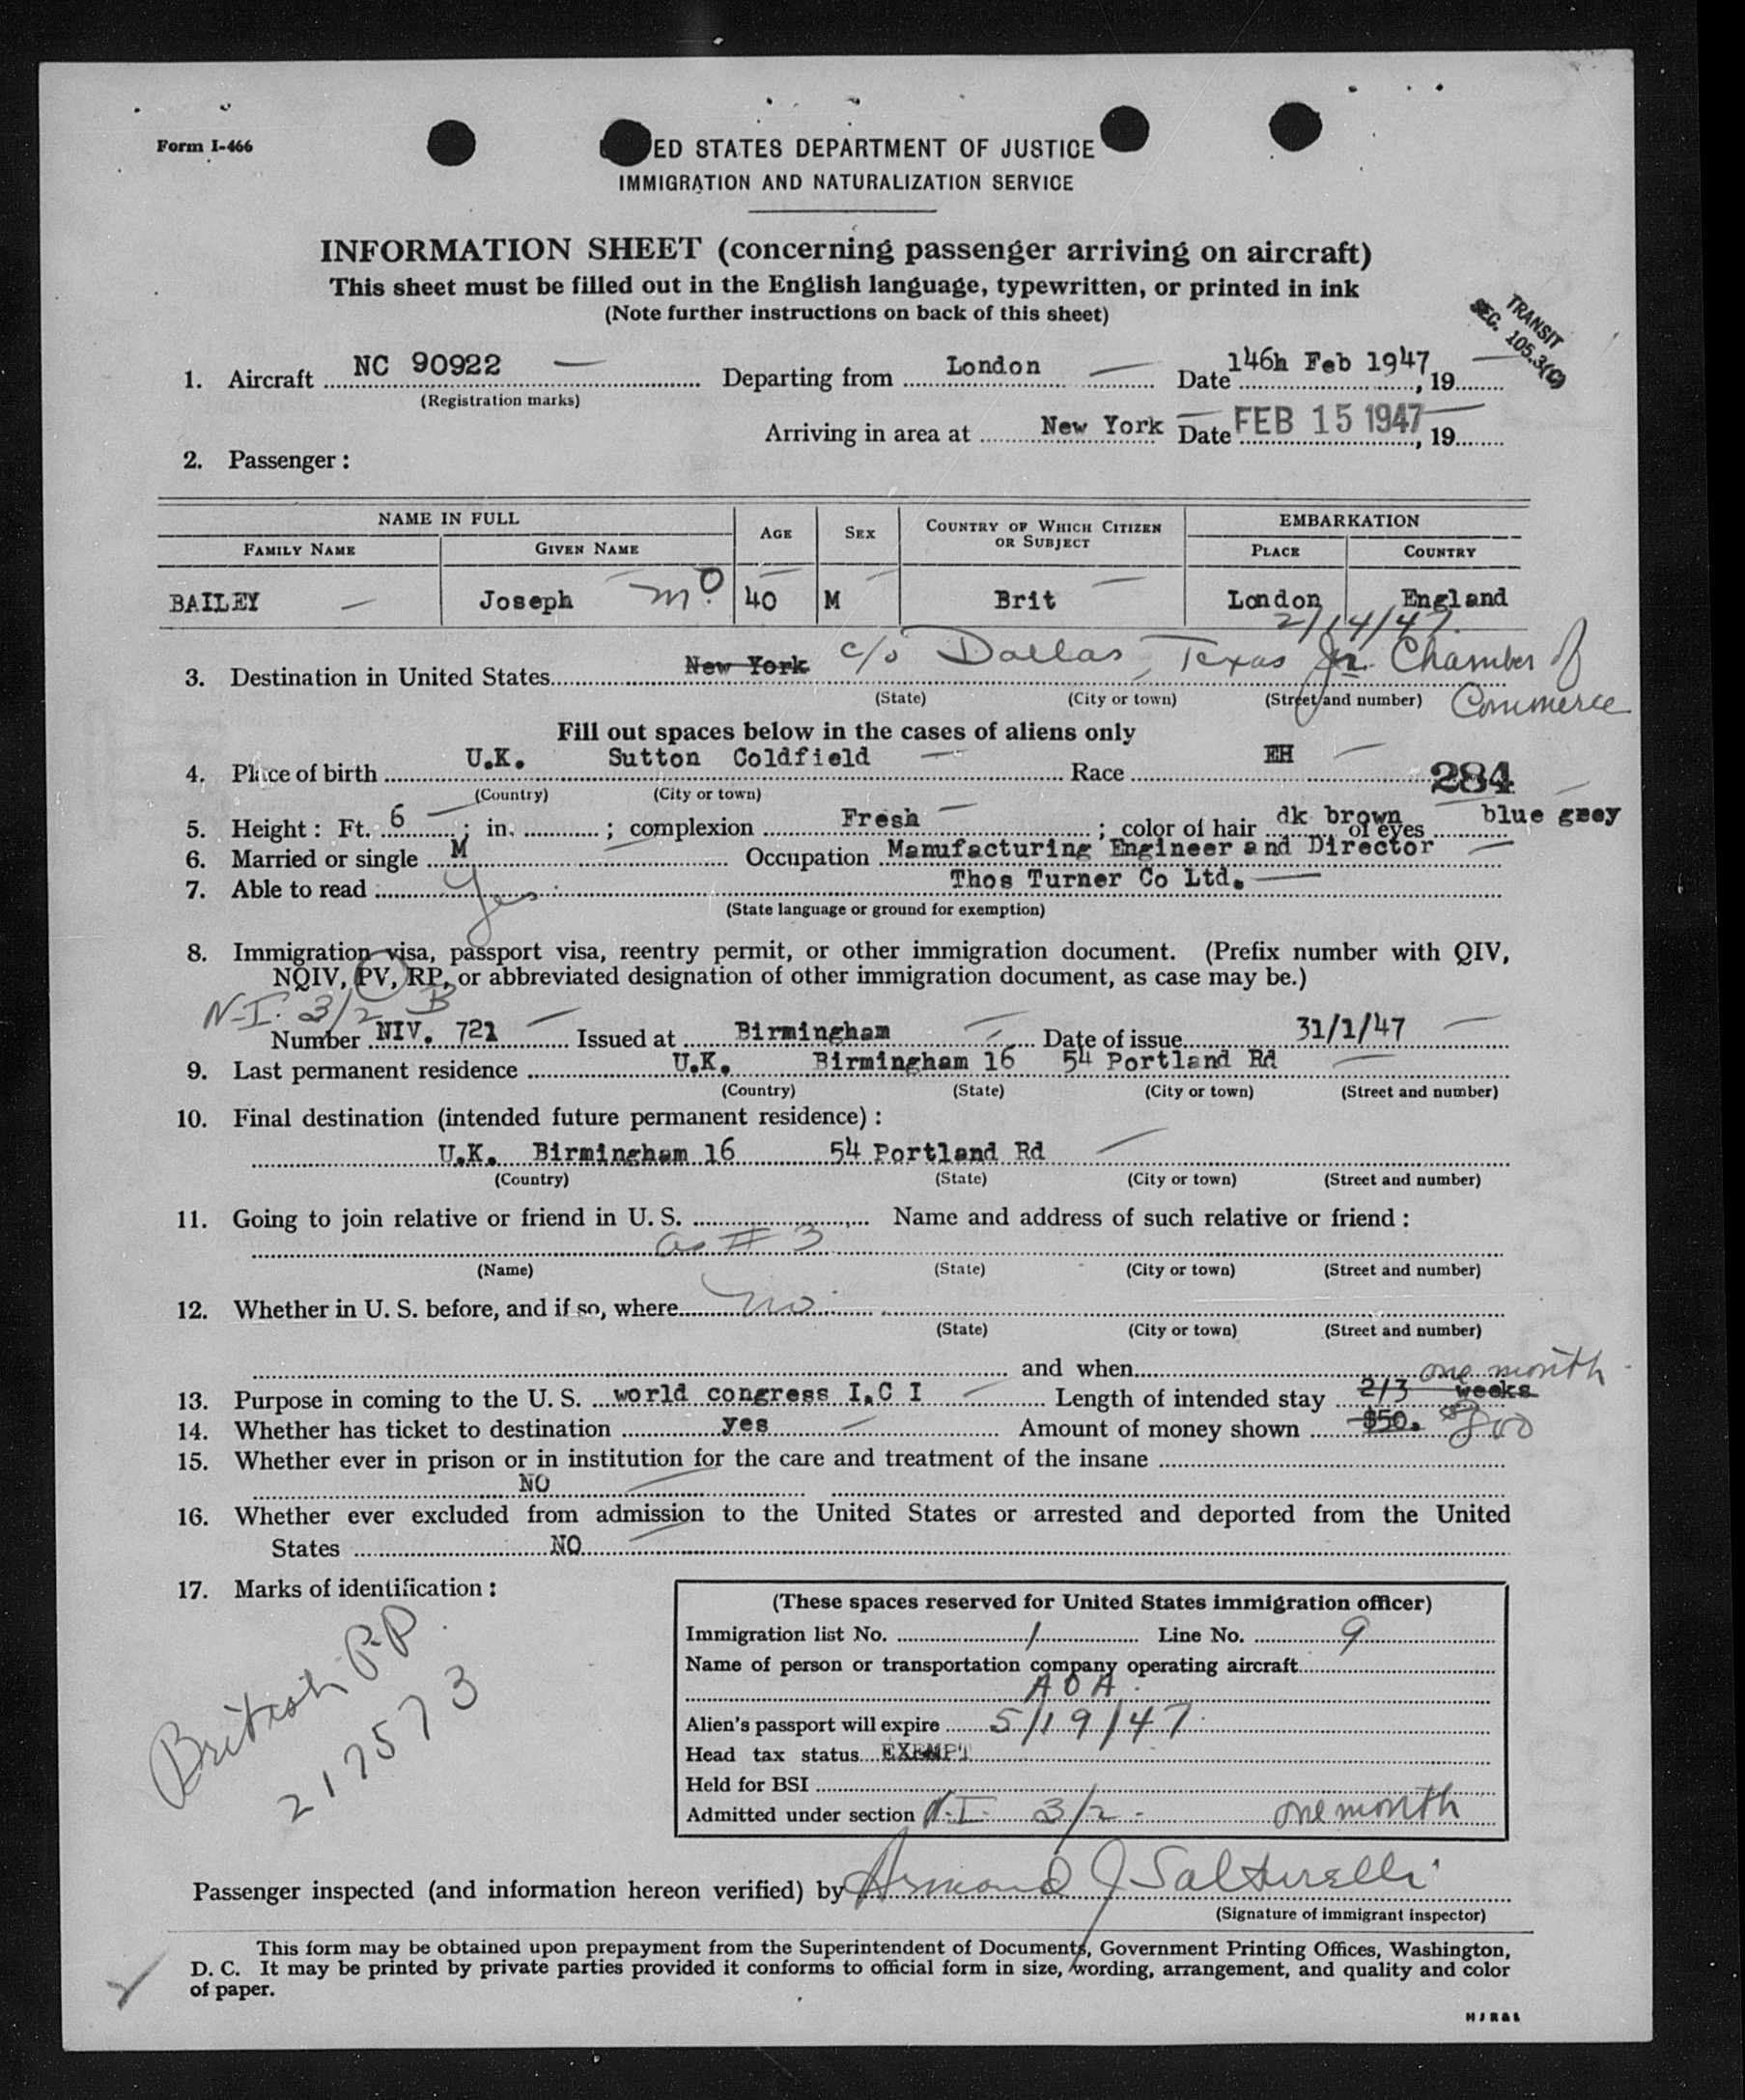 Form I-466
ED STATES DEPARTMENT OF JUSTICE
IMMIGRATION AND NATURALIZATION SERVICE
INFORMATION SHEET (concerning passenger arriving on aircraft)
This sheet must be filled out in the English language, typewritten, or printed in ink
(Note further instructions on back of this sheet)
TRANSIT
SEC. 105.3(C)
1. Aircraft NC 90922 Departing from London Date 146h Feb 1947, 19
(Registration marks)
Arriving in area at New York Date FEB 15 1947, 19
2. Passenger:
NAME IN FULL AGE SEX COUNTRY OF WHICH CITIZEN OR SUBJECT EMBARKATION
FAMILY NAME GIVEN NAME PLACE COUNTRY
BAILEY Joseph 40 M Brit London England
2/14/47
3. Destination in United States New York c/o Dallas, Texas Jr. Chamber of
Commerce
(State) (City or town) (Street and number)
Fill out spaces below in the cases of aliens only
4. Place of birth U.K. Sutton Coldfield Race EH
284
(Country) (City or town)
5. Height: Ft. 6; in.; complexion Fresh; color of hair dk brown of eyes blue grey
6. Married or single M Occupation Manufacturing Engineer and Director
7. Able to read Yes Thos Turner Co Ltd.
(State language or ground for exemption)
8. Immigration visa, passport visa, reentry permit, or other immigration document. (Prefix number with QIV,
NQIV, PV, RP, or abbreviated designation of other immigration document, as case may be.)
N-I. 3/2 B
Number NIV. 721 Issued at Birmingham Date of issue 31/1/47
9. Last permanent residence U.K. Birmingham 16 54 Portland Rd
(Country) (State) (City or town) (Street and number)
10. Final destination (intended future permanent residence):
U.K. Birmingham 16 54 Portland Rd
(Country) (State) (City or town) (Street and number)
11. Going to join relative or friend in U. S. Name and address of such relative or friend:
as # 3
(Name) (State) (City or town) (Street and number)
12. Whether in U. S. before, and if so, where no
(State) (City or town) (Street and number)
and when
one month
13. Purpose in coming to the U. S. world congress I.C I Length of intended stay 2/3 weeks
14. Whether has ticket to destination yes Amount of money shown $50. $800
15. Whether ever in prison or in institution for the care and treatment of the insane
NO
16. Whether ever excluded from admission to the United States or arrested and deported from the United
States NO
17. Marks of identification:
British P.P.
217573
(These spaces reserved for United States immigration officer)
Immigration list No. 1 Line No. 9
Name of person or transportation company operating aircraft
AOA
Alien's passport will expire 5/19/47
Head tax status EXEMPT
Held for BSI
Admitted under section N.I. 3/2 - one month
Passenger inspected (and information hereon verified) by Armond J Salturelli
(Signature of immigrant inspector)
This form may be obtained upon prepayment from the Superintendent of Documents, Government Printing Offices, Washington,
D. C. It may be printed by private parties provided it conforms to official form in size, wording, arrangement, and quality and color
of paper.